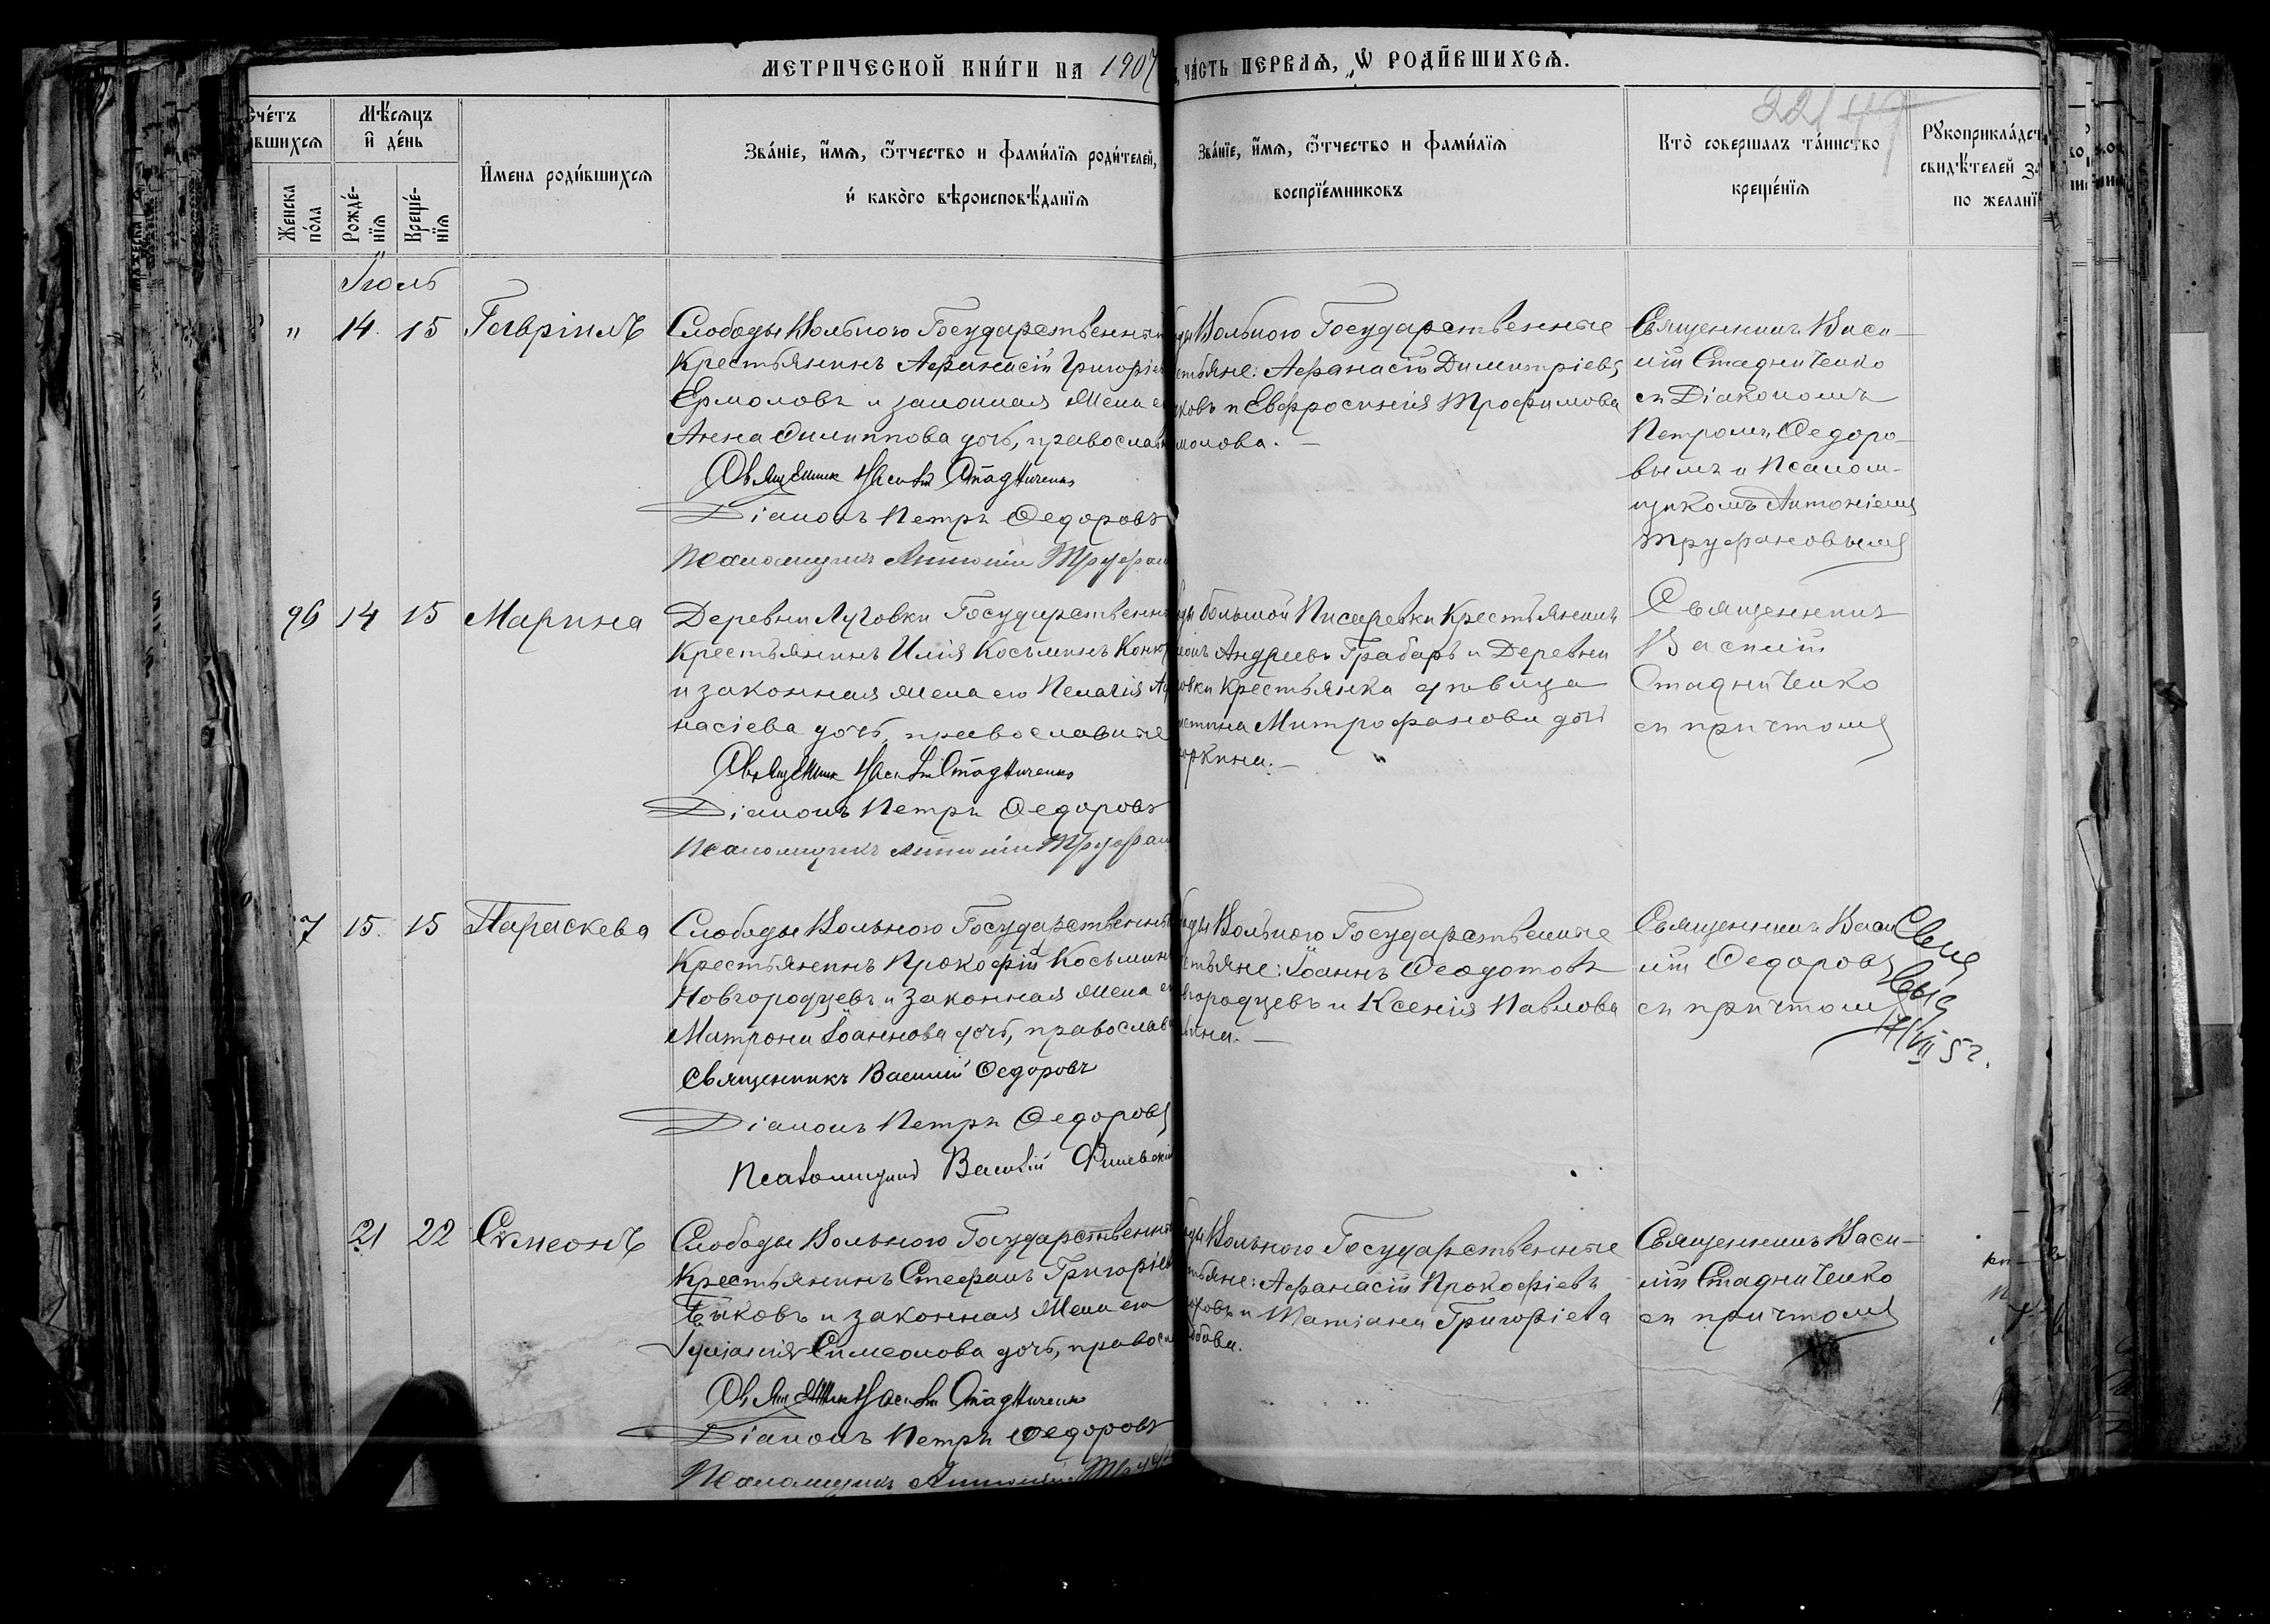 МЕТРИЧЕСКОЙ КНИ́ГИ НА 1907
ЧА́СТЬ ПЕРВАѦ, Ѡ РОДИ́ВШИХСѦ.
22
Сче́тъ
вшихсѧ
Мѣ́сѧцъ
и҆ де́нь
Женска
по́ла
Рожде́-
нїѧ
Креще́-
нїѧ
И҆мена роди́вшихсѧ
Зва́нїе, и҆́мѧ, ѻ҆́тчество и фами́лїѧ роди́телей,
и҆ како́го вѣроисповѣ́данїѧ
Зва́нїе, и҆́мѧ, ѻ҆́тчество и фами́лїѧ
воспрїе́мниковъ
Кто̀ совершалъ та́инство
креще́нїѧ
Рꙋкоприкла́дст
свидѣ́телей
по желанї
Іюль
" 14. 15 Гавріилъ
Слободы Вольного Государственны
Крестьянинъ Афанасій Григоріев
Ермоловъ и законная жена е
Анна Филиппова дочь, православ
Священник Василій Стадниченко
Діаконъ Петръ Федоровъ
Псаломщикъ Антоній Труфан
ды Вольного Государственные
стьяне: Афанасій Димитріевъ
ковъ и Евфросинія Трофимова
молова. —
Священникъ Васи-
лій Стадниченко
съ Діакономъ
Петромъ Федоро-
вымъ и Псалом-
щикомъ Антоніемъ
Труфановымъ
96 14 15 Марина
Деревни Луговки Государственн
Крестьянинъ Илія Косьминъ
и законная жена его Пелагія
насіева дочь, православные
Священник Василій Стадниченко
Діаконъ Петръ Федоровъ
Псаломщикъ Антоній Труфан
ды Большой Писаревки Крестьянинъ
Андреевъ Грабарь и Деревни
овки Крестьянка дѣвица
Митрофанова дочь
оркина. —
Священникъ
Василій
Стадниченко
съ причтомъ
7 15. 15 Параскева
Слободы Вольного Государственны
Крестьянинъ Прокофій Косьмин
Новгородцевъ и законная жена е
Матрона Іоаннова дочь, православ
Священникъ Василий Федоровъ
Діаконъ Петръ Федоровъ
Псаломщикъ Василій
ды Вольного Государственные
стьяне: Іоаннъ Феодотовъ
вгородцевъ и Ксенія Павлова
ина. —
Священникъ Васи
лій Федоровъ
съ причтомъ
21 22 Сѵмеонъ
Слободы Вольного Государственны
Крестьянинъ Стефанъ Григоріев
Быковъ и законная жена его
Іуліанія Симеонова дочь, правосл
Священник Василій Стадниченко
Діаконъ Петръ Федоровъ
Псаломщикъ Антоній
ды Вольного Государственные
стьяне: Афанасій Прокофіевъ
и Татіана Григоріева
Священникъ Васи-
лій Стадниченко
съ причтомъ